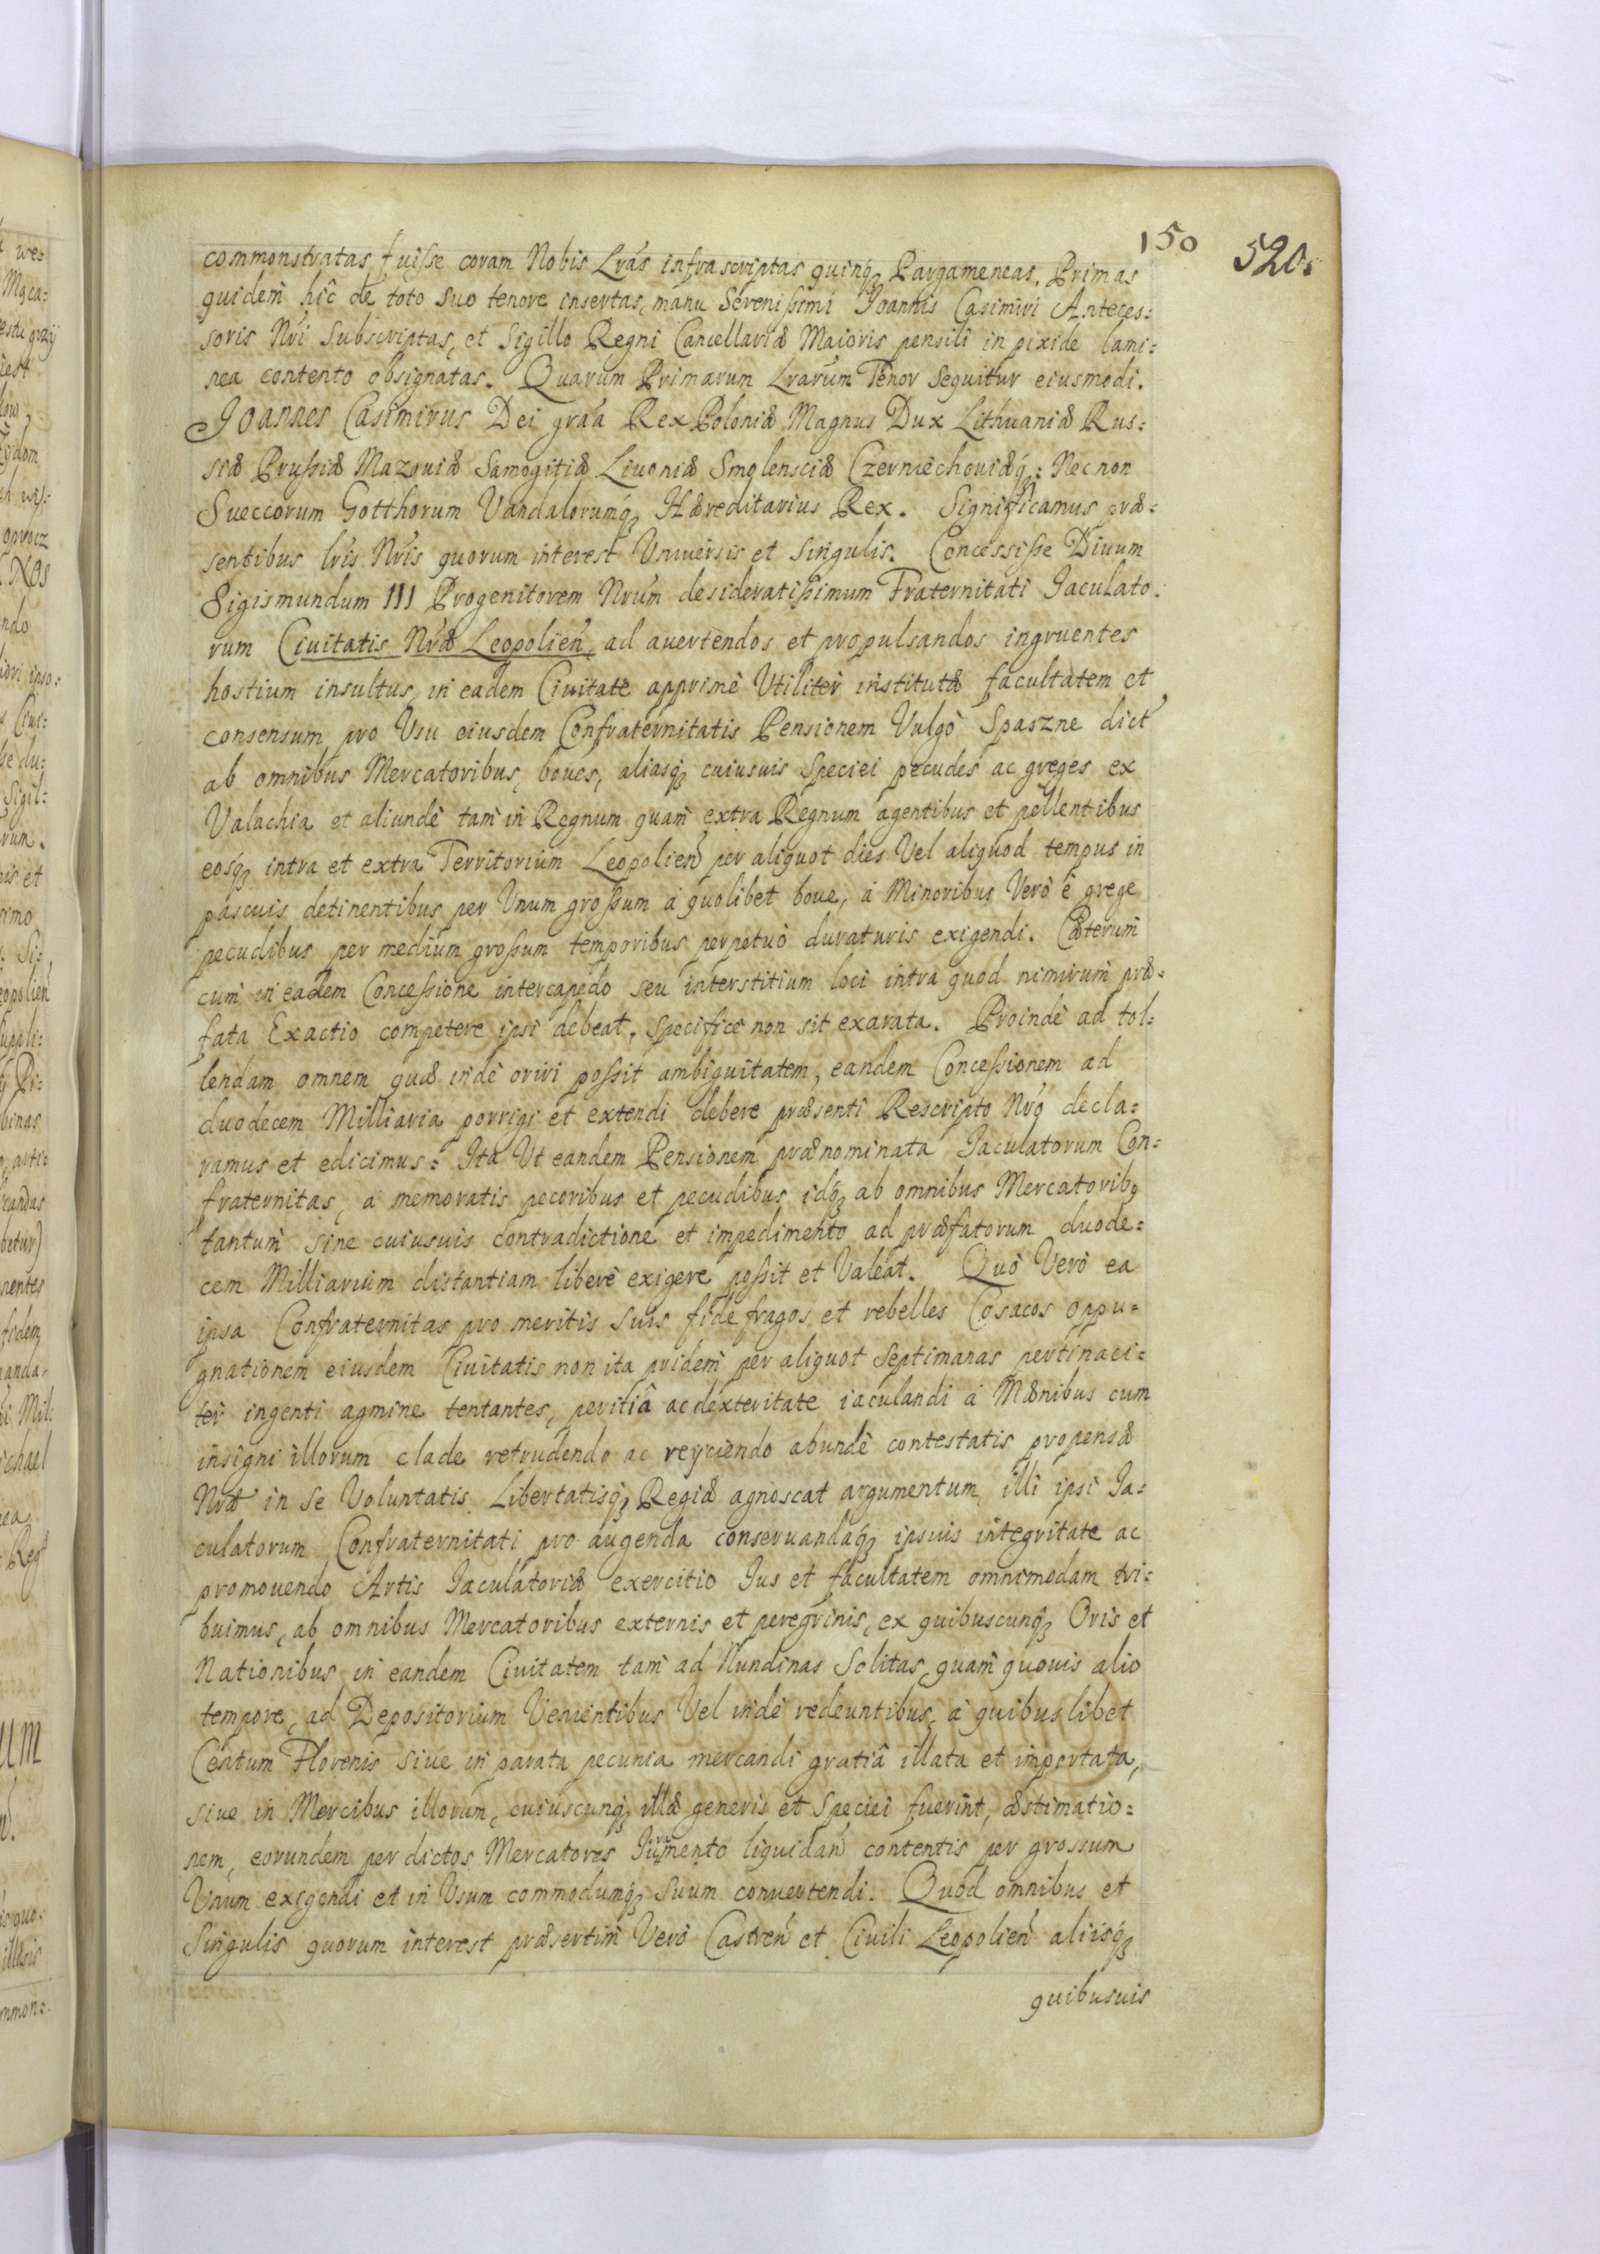 150 520.
commonstratas fuisse coram Nobis Lrás infrascriptas quinq́ꝫ Pargameneas. Primas
quidem̀ hîc de toto suo tenore insertas, manu Serenissimi Joannis Casimiri Anteces:
soris Nr̃i Subscriptas, et Sigillo Regni Cancellariæ Maioris pensili in pixide lami:
nea contento obsignatas. Quarum Primarum Lrarum Tenor Sequitur eiusmodi.
Joannes Casimirus Dei gra͂a Rex Poloniæ Magnus Dux Lithuaniæ Rus:
siæ Prussiæ Mazouiæ Samogitiæ Liuoniæ Smolensciæ Czerniechouiæq́ꝫ: Nec non
Sueccorum Gotthorum Vandalorumq́ꝫ Hæreditarius Rex. Significamus præ:
sentibus lr̃is Nr̃is quorum interest Vniuersis et Singulis. Concessisse Diuum
Sigismundum III Progenitorem Nr̃um desideratissimum Fraternitati Jaculato:
rum Ciuitatis Nr̃æ Leopolien̄, ad auertendos et propulsandos ingruentes
hostium insultus, in eadem Ciuitate apprimè Vtiliter̀ institutæ facultatem et
consensum pro Vsu eiusdem Confraternitatis Pensionem Vulgò Spaszne dict̄
ab omnibus Mercatoribus, boues, aliasq́ꝫ cuiusuis Speciei pecudes ac greges ex
Valachia et aliundè tam̀ in Regnum quam̀ extra Regnum agentibus et pellentibus
eosq́ꝫ intra et extra Territorium Leopolien̄ per aliquot dies Vel aliquod tempus in
pascuis detinentibus per Vnum grossum à quolibet boue, à Minoribus Verò è grege
pecudibus per medium grossum temporibus perpetuò duraturis exigendi. Cæterum̀
cum̀ in eadem Concessione intercapedo seu interstitium loci intra quod nimirum̀ præ:
fata Exactio competere ipsi debeat, specificè non sit exarata. Proindè ad tol:
lendam omnem quæ indè oriri possit ambiguitatem, eandem Concessionem ad
duodecem Milliaria porrigi et extendi debere præsenti Rescripto Nr̃o decla:
ramus et edicimus: Ita Vt eandem Pensionem prænominata Jaculatorum Con:
fraternitas, à memoratis pecoribus et pecudibus idq́ꝫ ab omnibus Mercatoribꝯ
tantum̀ sine cuiusuis contradictione et impedimento ad præfatorum duode:
cem Milliarium distantiam liberè exigere possit et Valeat. Quò Verò ea
ipsa Confraternitas pro meritis suis fidefragos, et rebelles Cosacos oppu:
gnationem eiusdem Ciuitatis non ita pridem̀ per aliquot Septimanas pertinaci:
ter̀ ingenti agmine tentantes, peritiâ ac dexteritate iaculandi à Mænibus cum
insigni illorum clade retrudendo ac reyciendo abundè contestatis propensæ
Nr̃æ in se Voluntatis Libertatisq́ꝫ Regiæ agnoscat argumentum, illi ipsi Ja:
culatorum Confraternitati pro augenda conseruandaq́ꝫ ipsuis integritate ac
promouendo Artis Jaculatoriæ exercitio Jus et facultatem omnimodam tri:
buimus, ab omnibus Mercatoribus externis et peregrinis, ex quibuscunq́ꝫ Oris et
Nationibus in eandem Ciuitatem tam̀ ad Nundinas Solitas, quam̀ quouis alio
tempore, ad Depositorium Venientibus Vel indè redeuntibus, à quibuslibet
Centum Florenis siue in parata pecunia mercandi gratiâ illata et importata,
siue in Mercibus illorum, cuiuscunq́ꝫ illæ generis et Speciei fuerint, æstimatio:
nem, eorundem per dictos Mercatores Juramento liquidan̄ contentis per grossum
Vnum exigendi et in Vsum commodumq́ꝫ suum conuertendi. Quod omnibus et
Singulis quorum interest præsertim̀ Verò Castren̄ et Ciuili Leopolien̄ aliisq́ꝫ
quibusuis